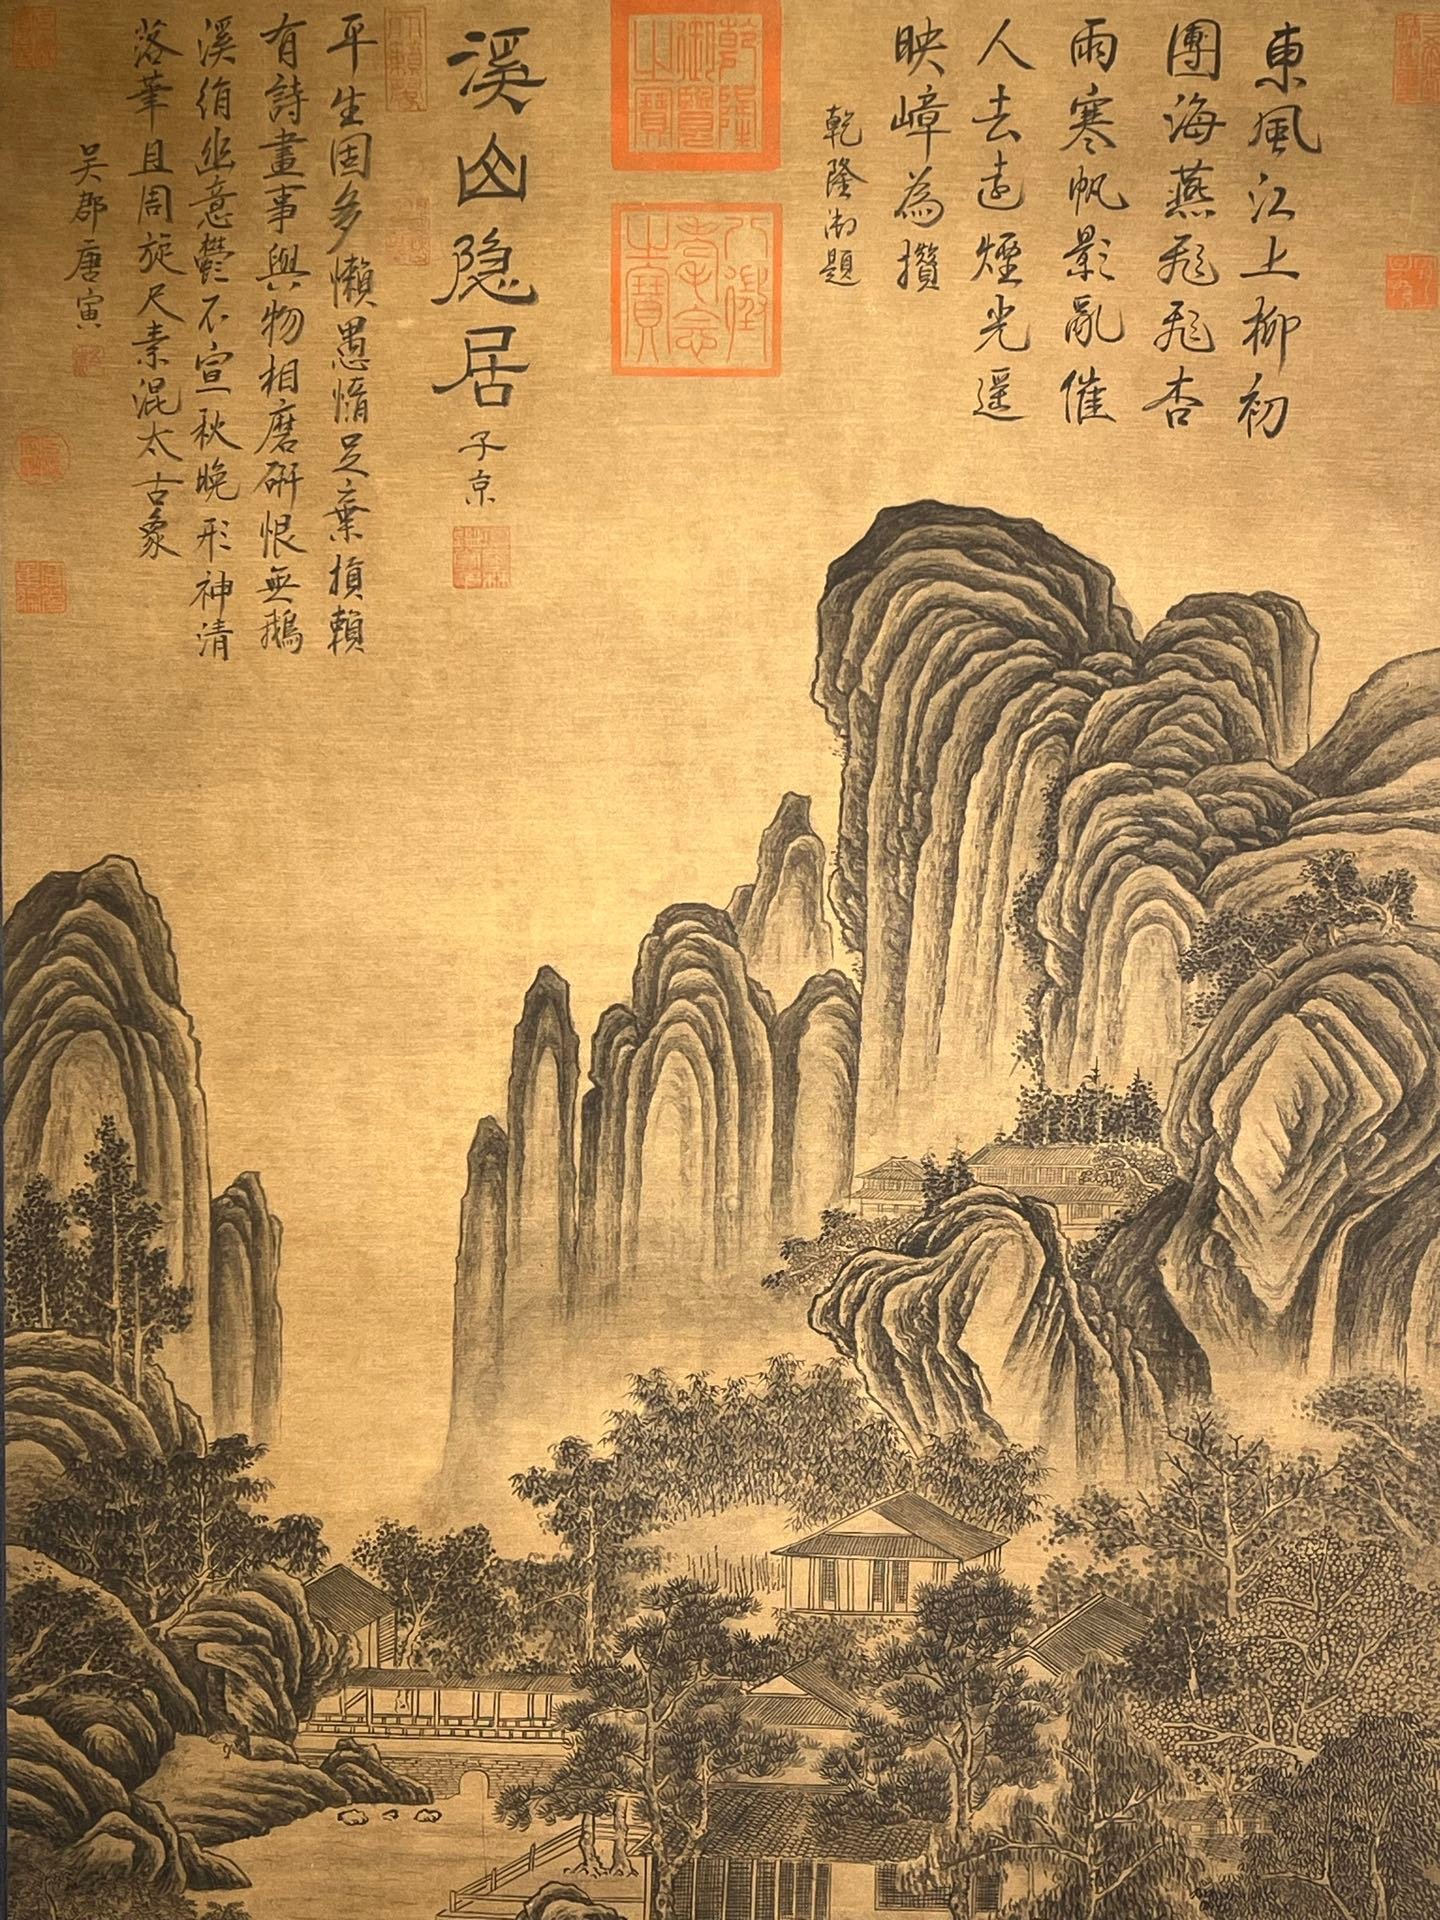 東風江上柳初
團海燕飛飛杏
雨寒帆影亂催
人去遠煙光遥
映嶂為攢
乾隆御題
乾隆御覽之寶
八徵耄念之寶
溪山隐居
子京
平生固多懶愚惰足棄損賴
有詩畫事與物相磨研恨無鵝
溪絹幽意鬱不宣秋晚形神清
落筆且周旋尺素混太古象
吴郡唐寅